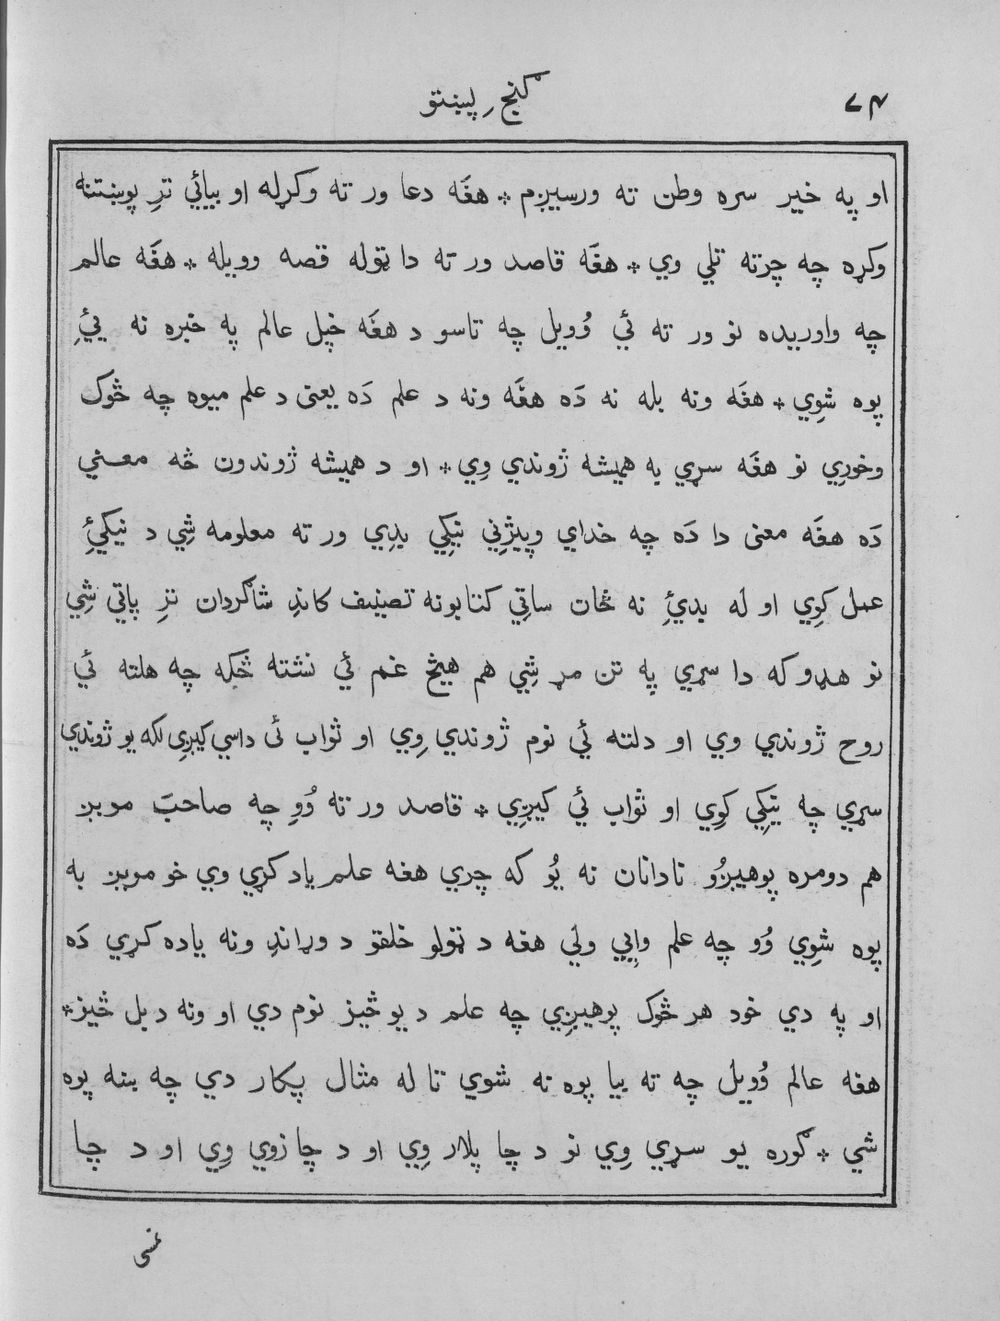 ۷۴
ګنج ِ پښتو
او په خیر سره وطن ته ورسیږم * هغَه دعا ور ته وکړله او بیائي ترِ پوښتنه
وکړه چه چرته تلي وي * هغَه قاصد ور ته دا ټوله قصه وویله * هغَه عالم
چه واوریده نو ور ته ئي وُویل چه تاسو د هغَه خپل عالم په خبره نه یئِ
پوه شوِي * هغَه ونه بله نه دَه هغَه ونه د علم دَه یعنی د علم میوه چه څوک
وخورِي نو هغَه سړي به همیشه ژوندي وِي * او د همیشه ژوندون څه معني
دَه هغَه معنی دا دَه چه خداي وپیژنِي نیکِي بدِي ور ته معلومه شِي د نیکیِٔ
عمل کوِي او له بدیِٔ نه ځان ساتِي کتابونه تصنیف کاندِ شاګردان ترِ پاتِي شِي
نو هډو که دا سړي په تن مړ شِي هم هیڅ غم ئي نشته ځکه چه هلته ئي
روح ژوندي وي او دلته ئي نوم ژوندي وِي او ثواب ئی داسي کیږِي لکه یو ژوندي
سړي چه نیکِي کوِي او ثواب ئي کیږِي * قاصد ور ته وُوِ چه صاحبَ موږ
هم دومره پوهیږُو نادانان نه یُو که چرِي هغه علم یاد کړي وي خو موږ به
پوه شوِي وُو چه علم وایِي ولي هغه د ټولو خلقو د وړاندِ ونه یاده کړِي دَه
او په دي خود هر څوک پوهیږِي چه علم د یو څیز نوم دي او ونه د بل څیز *
هغه عالم وُویل چه ته بیا پوه نه شوي تا له مثال پکار دي چه ښه پوه
شي * ګوره یو سړي وِي نو د چا پلار وِي او د چا زوي وِي او د چا